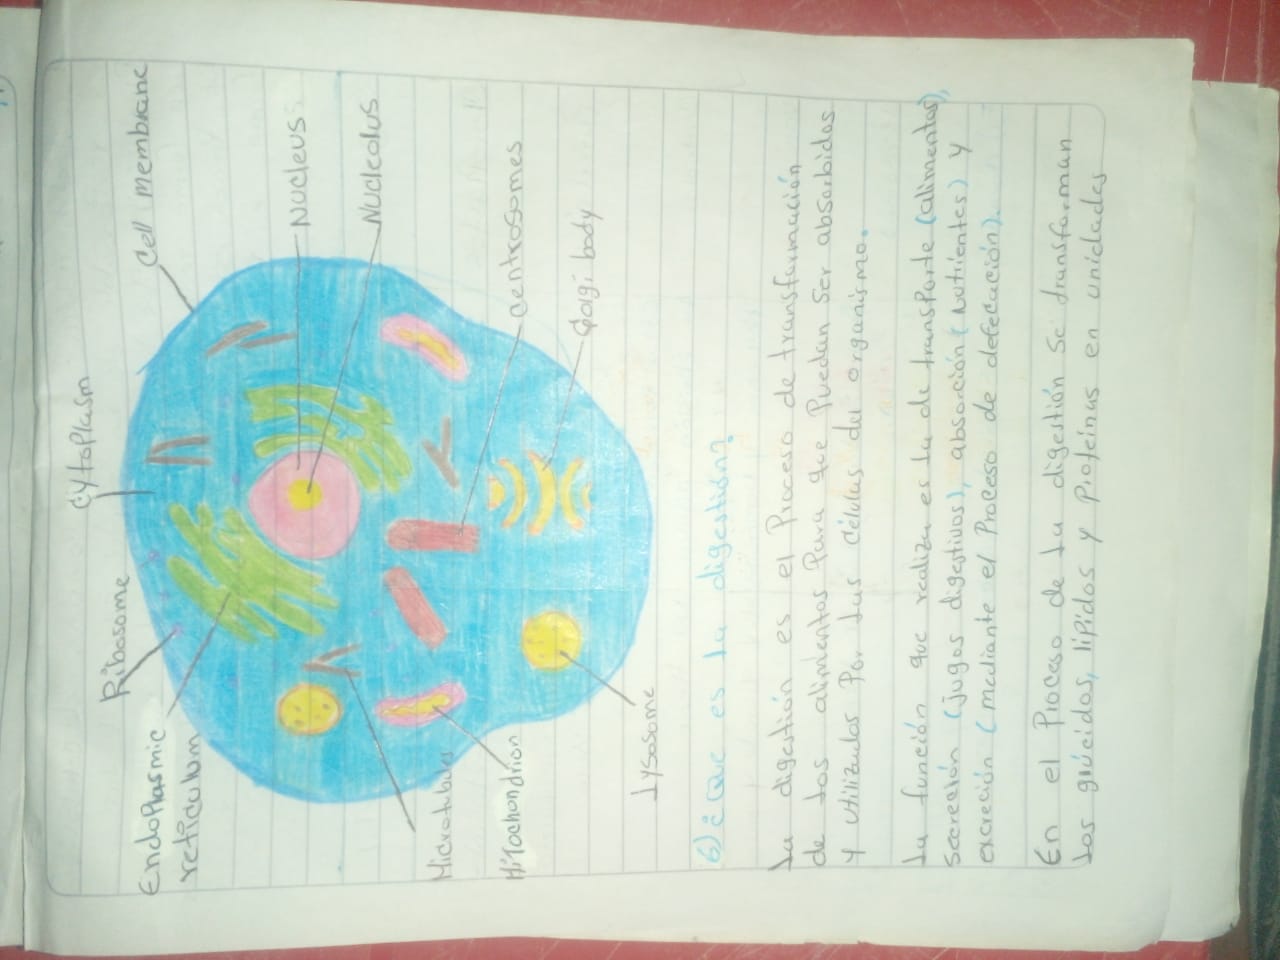 Cell membrane
Cytoplasm
Nucleus
Ribosome
Nucleolus
Endoplasmic
reticulum
Centrosomes
Golgi body
Microtubules
Mitochondrion
Lysosome
6) ¿Que es la digestión?
La digestión es el Proceso de transformación
de los alimentos Para que Puedan Ser absorbidos
y utilizados Por las células del organismo.
La función que realiza es la de transporte (alimentos),
secreción (jugos digestivos), absorción (nutrientes) y
excreción (mediante el Proceso de defecación).
En el Proceso de la digestión Se transforman
los glúcidos, lípidos y Proteínas en unidades